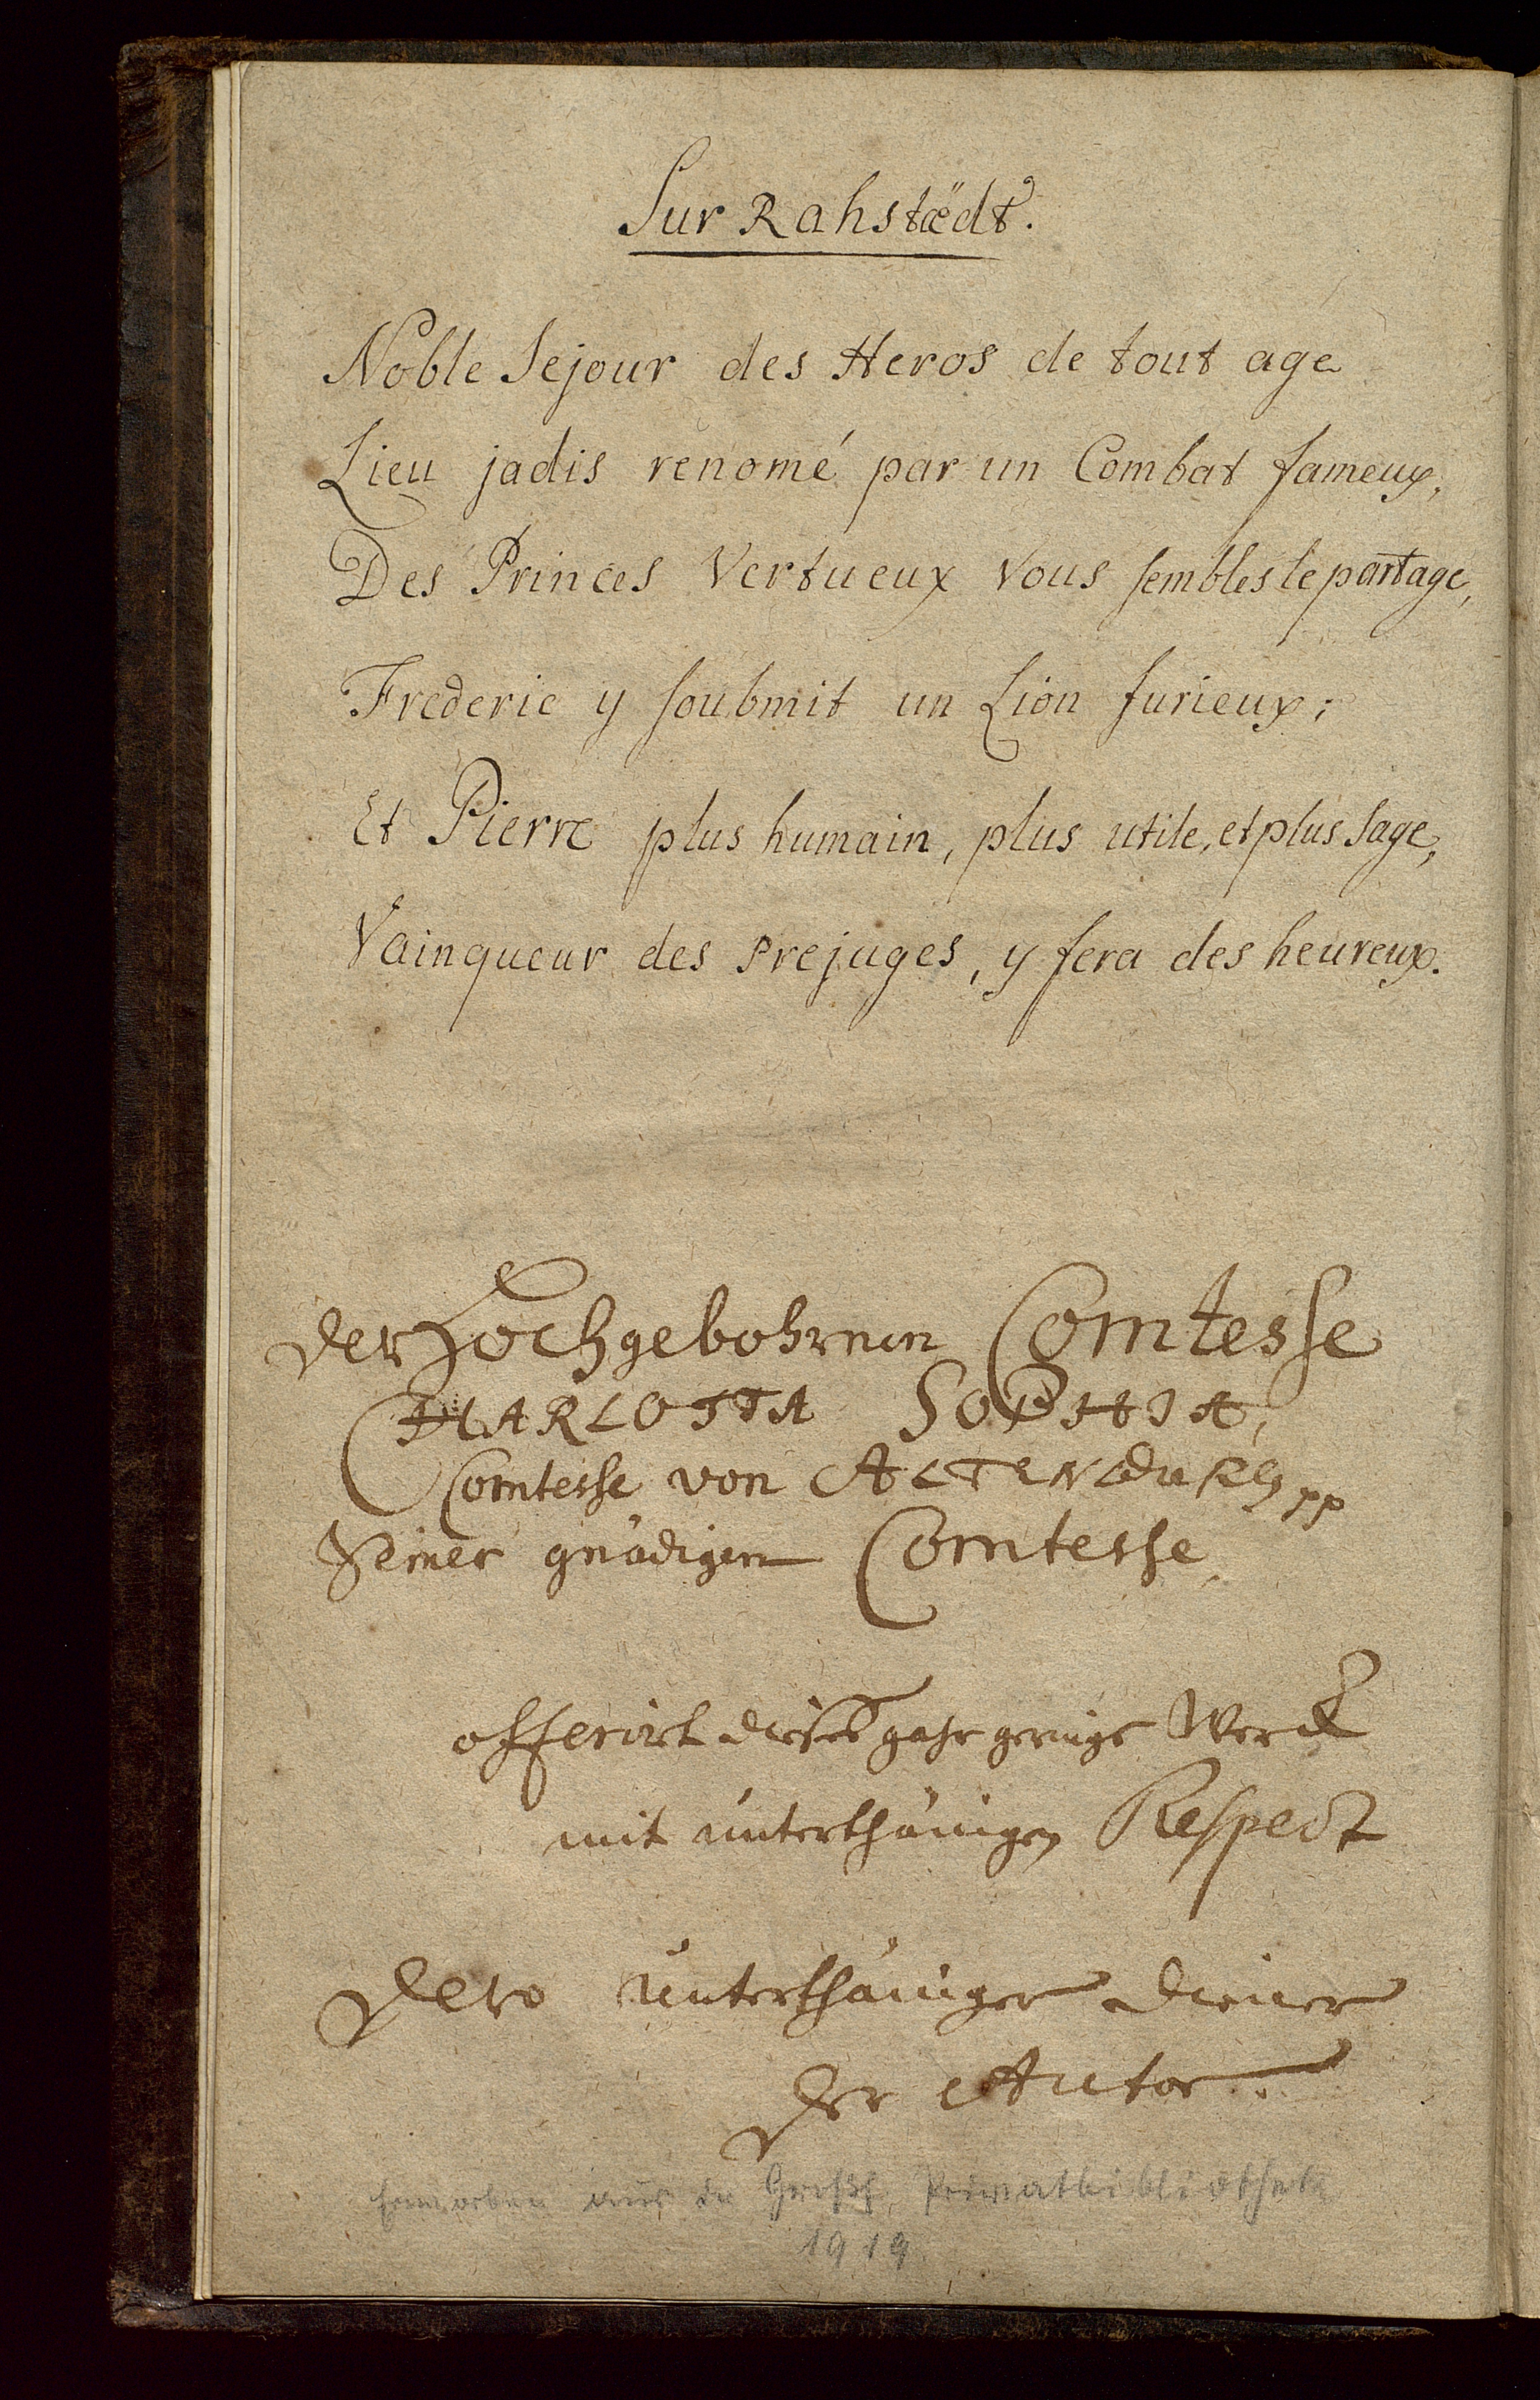 Sur Rahstædt.
Noble Sejour des Heros de tout age
Lieu jadis renomé par un Combat fameux,
Des Princes Vertueux Vous sembles le partage,
Frederic y soubmit un Lion furieux;
Et Pierre plus humain, plus utile, et plus Sage,
Vainqueur des Prejuges, y fera des heureux.
Der Hochgebohrnen Comtesse
CHARLOTTA SOPHIA,
Comtesse von ALTENBURG pp
Seiner gnädigen Comtesse
offerirt dieses gahr geringe Werck
mit unterthänigen Respect
Dero unterthäniger Diener
Der Autor.
Erworben aus der Großh. Privatbibliothek
1919.